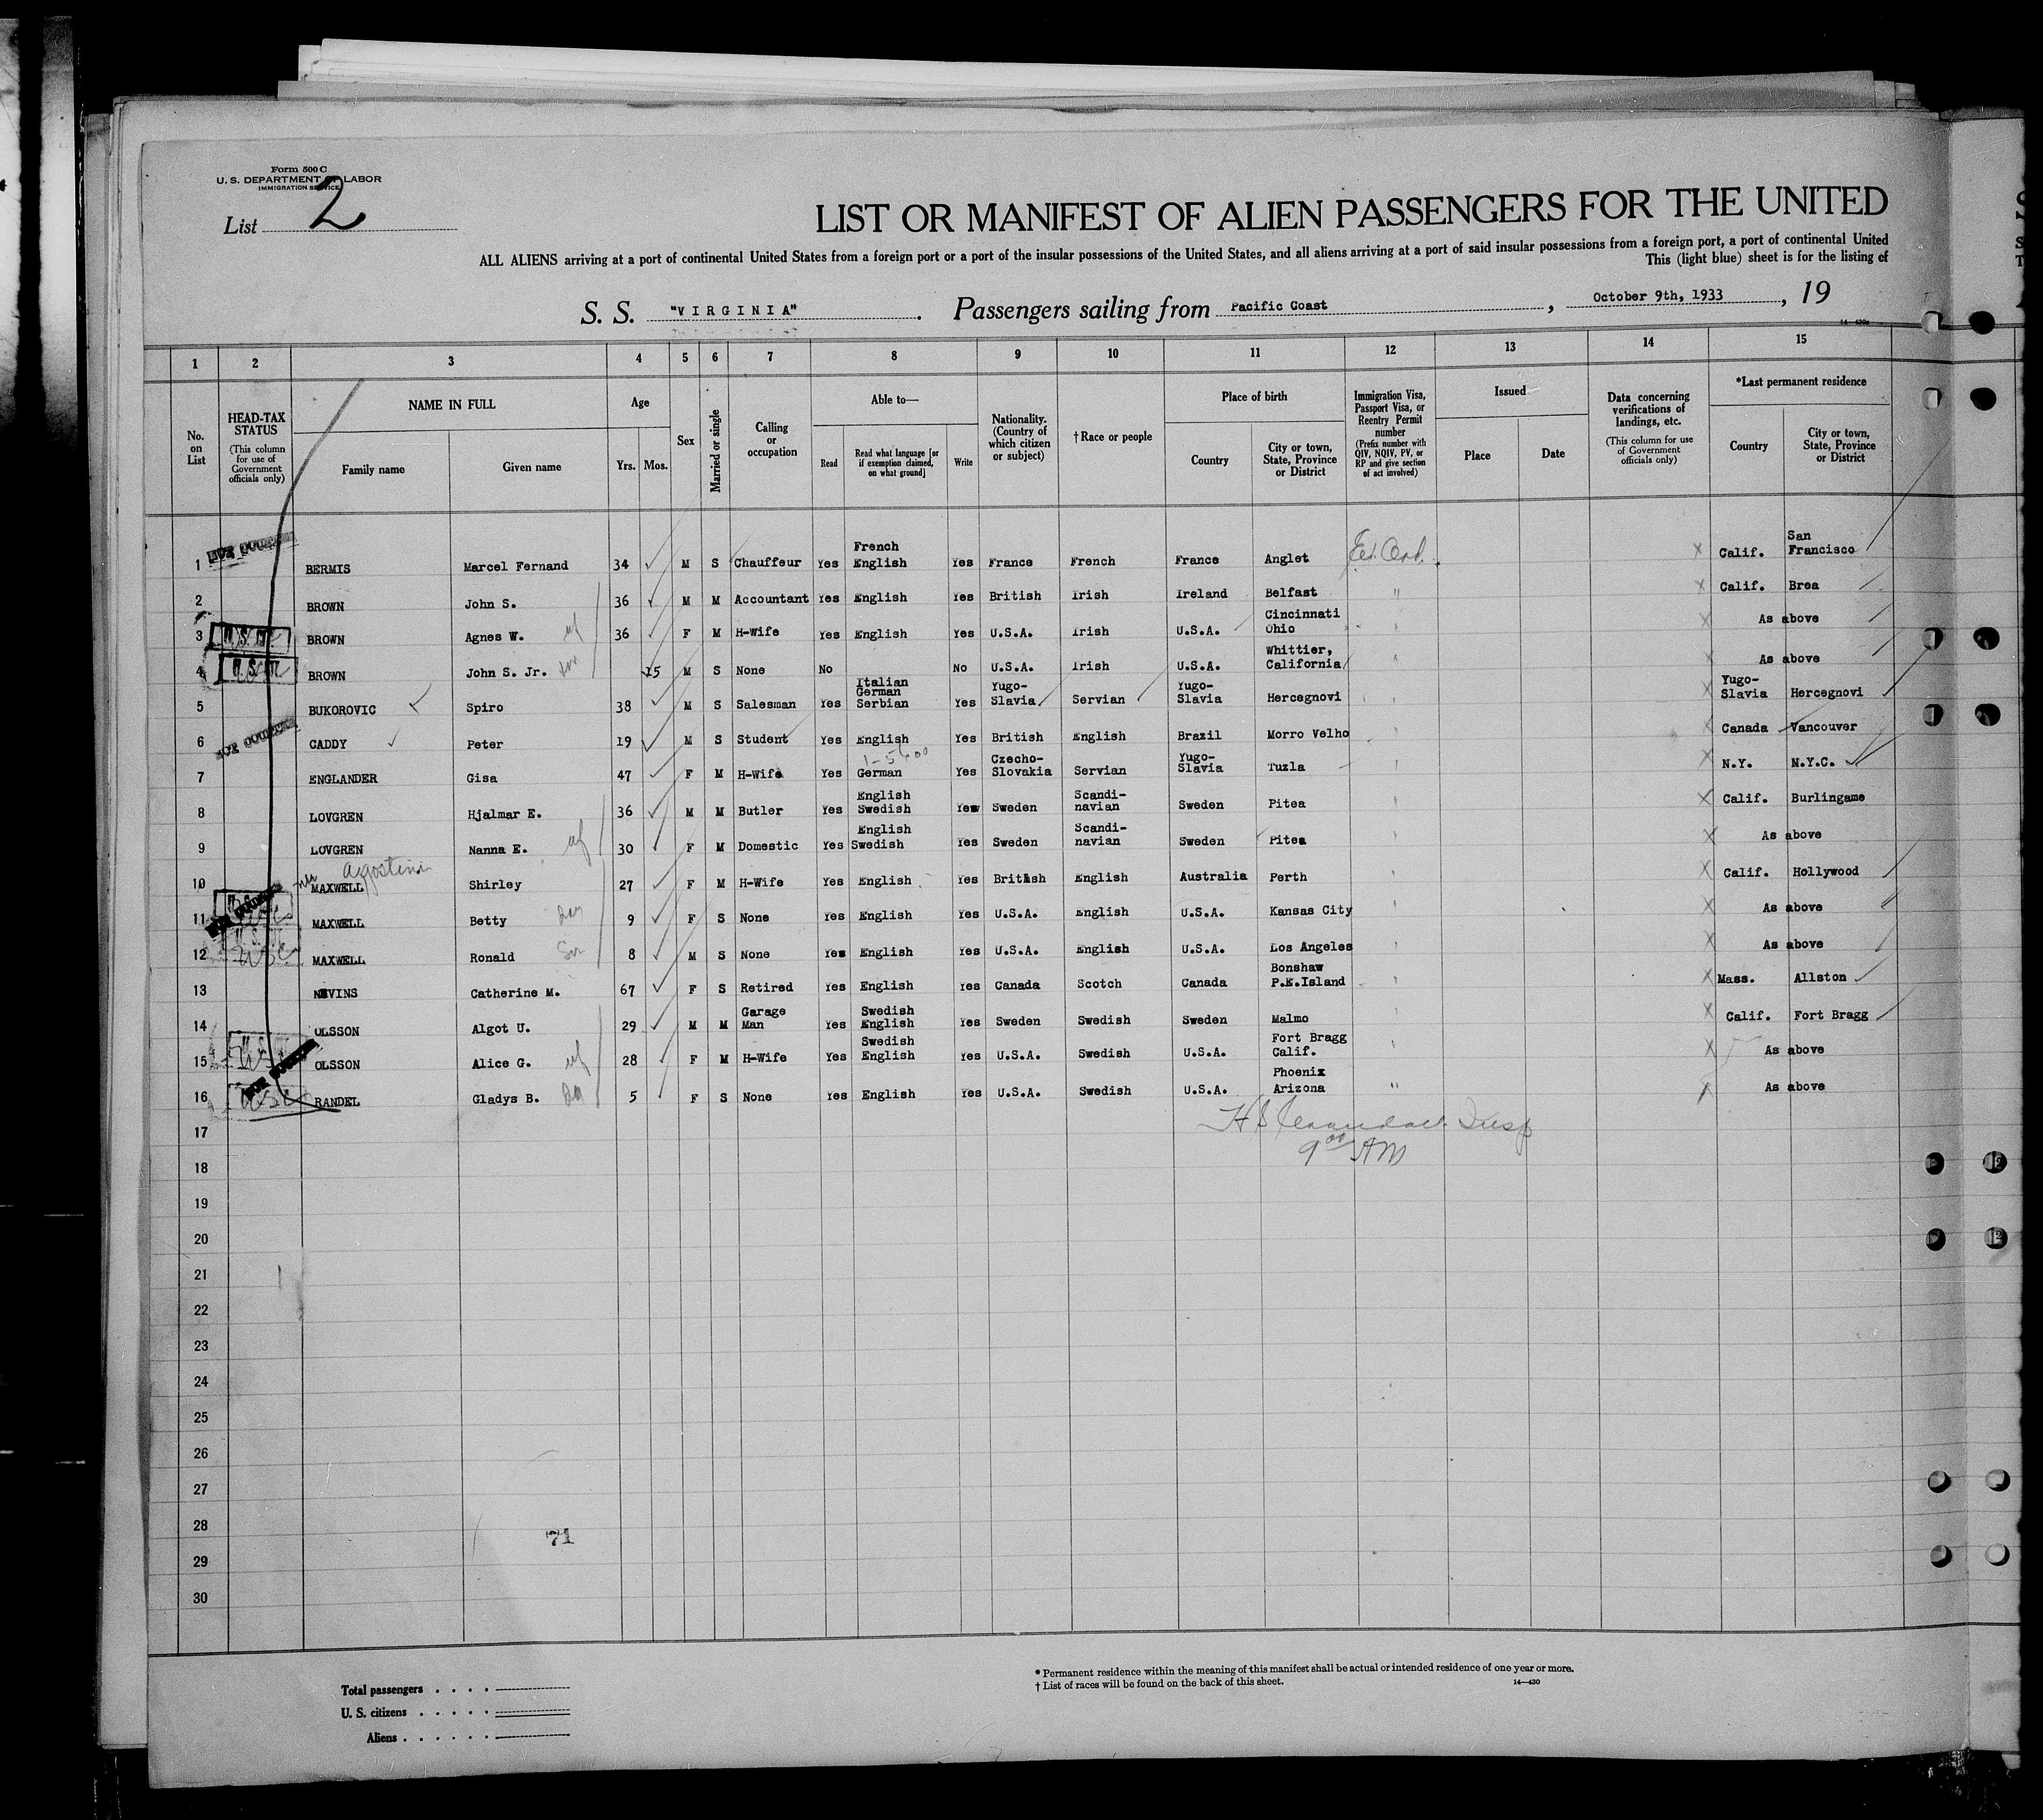 Form 500 C
U. S. DEPARTMENT OF LABOR
IMMIGRATION SERVICE
List 2
LIST OR MANIFEST OF ALIEN PASSENGERS FOR THE UNITED
ALL ALIENS arriving at a port of continental United States from a foreign port or a port of the insular possessions of the United States, and all aliens arriving at a port of said insular possessions from a foreign port, a port of continental United
This (light blue) sheet is for the listing of
S. S. "VIRGINIA". Passengers sailing from Pacific Coast, October 9th, 1933, 19
14—430a
1 2 3 4 5 6 7 8 9 10 11 12 13 14 15
No. on List
HEAD-TAX STATUS
(This column for use of Government officials only)
NAME IN FULL
Family name
Given name
Age
Yrs. Mos.
Sex
Married or single
Calling or occupation
Able to—
Read
Read what language [or if exemption claimed, on what ground]
Write
Nationality. (Country of which citizen or subject)
†Race or people
Place of birth
Country
City or town, State, Province or District
Immigration Visa, Passport Visa, or Reentry Permit number
(Prefix number with QIV, NQIV, PV, or RP and give section of act involved)
Issued
Place
Date
Data concerning verifications of landings, etc.
(This column for use of Government officials only)
*Last permanent residence
Country
City or town, State, Province or District
1 BERMIS Marcel Fernand 34 M S Chauffeur Yes French English Yes France French France Anglet x Calif. San Francisco
2 BROWN John S. 36 M M Accountant Yes English Yes British Irish Ireland Belfast " x Calif. Brea
3 U.S.C. BROWN Agnes W. wf 36 F M H-Wife Yes English Yes U.S.A. Irish U.S.A. Cincinnati Ohio x As above
4 BROWN John S. Jr. son 15 M S None No No U.S.A. Irish U.S.A. Whittier, California x As above
5 BUKOROVIC Spiro 38 M S Salesman Yes Italian German Serbian Yes Yugo-Slavia Servian Yugo-Slavia Hercegnovi x Yugo-Slavia Hercegnovi
6 CADDY Peter 19 M S Student Yes English Yes British English Brazil Morro Velho x Canada Vancouver
7 ENGLANDER Gisa 47 F M H-Wife Yes German Yes Czecho-Slovakia Servian Yugo-Slavia Tuzla x N.Y. N.Y.C.
8 LOVGREN Hjalmar E. 36 M M Butler Yes English Swedish Yes Sweden Scandi-navian Sweden Pitea x Calif. Burlingame
9 LOVGREN Nanna E. wf 30 F M Domestic Yes English Swedish Yes Sweden Scandi-navian Sweden Pitea x As above
10 nee Agostini MAXWELL Shirley 27 F M H-Wife Yes English Yes British English Australia Perth x Calif. Hollywood
11 MAXWELL Betty Dau 9 F S None Yes English Yes U.S.A. English U.S.A. Kansas City x As above
12 USC MAXWELL Ronald Son 8 M S None Yes English Yes U.S.A. English U.S.A. Los Angeles x As above
13 NEVINS Catherine M. 67 F S Retired Yes English Yes Canada Scotch Canada Bonshaw P.E.Island x Mass. Allston
14 OLSSON Algot U. 29 M M Garage Man Yes Swedish English Yes Sweden Swedish Sweden Malmo x Calif. Fort Bragg
15 OLSSON Alice G. wf 28 F M H-Wife Yes Swedish English Yes U.S.A. Swedish U.S.A. Fort Bragg Calif. x As above
16 USC RANDEL Gladys B. Da 5 F S None Yes English Yes U.S.A. Swedish U.S.A. Phoenix Arizona " x As above
17
9 00 AM
18
19
20
21
22
23
24
25
26
27
28
71
29
30
* Permanent residence within the meaning of this manifest shall be actual or intended residence of one year or more.
† List of races will be found on the back of this sheet.
14—430
Total passengers
U. S. citizens
Aliens